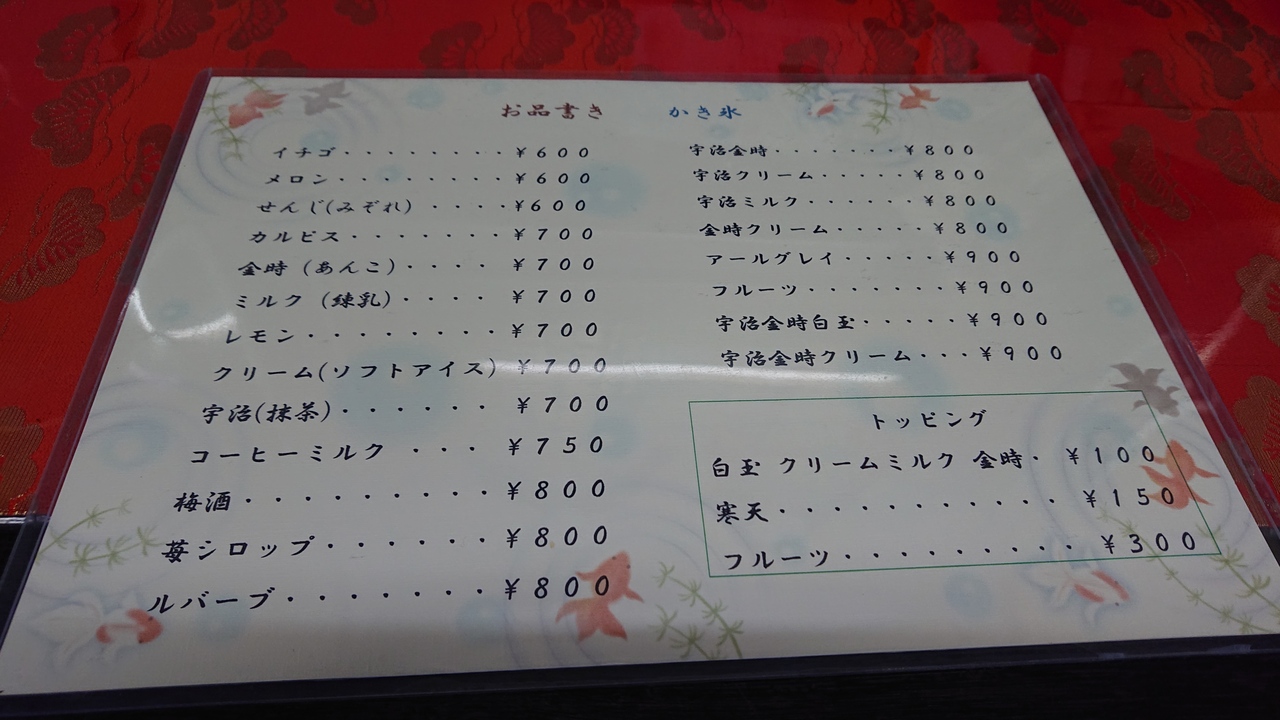 お品書き　かき氷
イチゴ・・・・・・・・・￥６００
メロン・・・・・・・・・￥６００
せんじ(みぞれ) ・・・・￥６００
カルピス・・・・・・・￥７００
金時（あんこ）・・・・￥７００
ミルク（練乳）・・・・￥７００
レモン・・・・・・・・・￥７００
クリーム(ソフトアイス) ￥７００
宇治(抹茶)・・・・・・￥７００
コーヒーミルク ・・・￥７５０
梅酒・・・・・・・・・￥８００
苺シロップ・・・・・・￥８００
ルバーブ・・・・・・・￥８００
宇治金時・・・・・・・￥８００
宇治クリーム・・・・・￥８００
宇治ミルク・・・・・・￥８００
金時クリーム・・・・・￥８００
アールグレイ・・・・・￥９００
フルーツ・・・・・・・￥９００
宇治金時白玉・・・・・￥９００
宇治金時クリーム・・・￥９００
トッピング
白玉 クリームミルク 金時・￥１００
寒天・・・・・・・・・・・￥１５０
フルーツ・・・・・・・・・￥３００